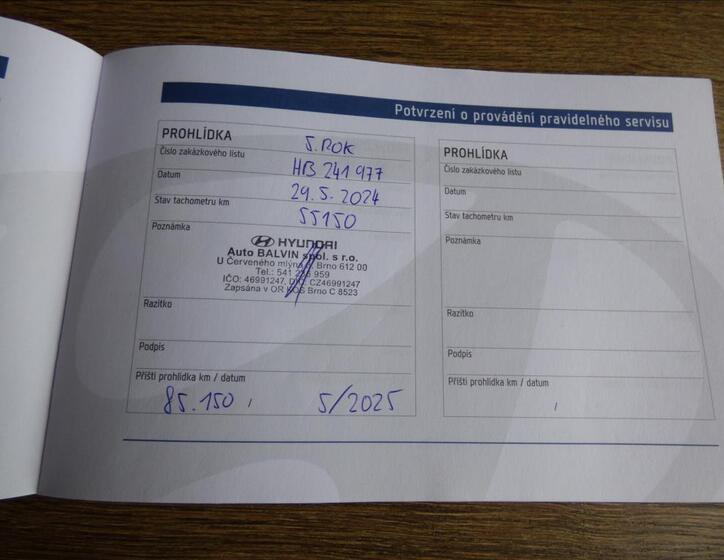 Potvrzení o provádění pravidelného servisu
PROHLÍDKA 5. ROK
Číslo zakázkového listu HB 241 977
Datum 29. 5. 2024
Stav tachometru km 55150
Poznámka
HYUNDAI
Auto BALVIN spol. s r.o.
U Červeného mlýna Brno 612 00
Tel.: 541 959
IČO: 46991247, CZ46991247
Zapsána v OR KOS Brno C 8523
Razítko
Podpis
Příští prohlídka km / datum
85.150 / 5/2025
PROHLÍDKA
Číslo zakázkového listu
Datum
Stav tachometru km
Poznámka
Razítko
Podpis
Příští prohlídka km / datum
/